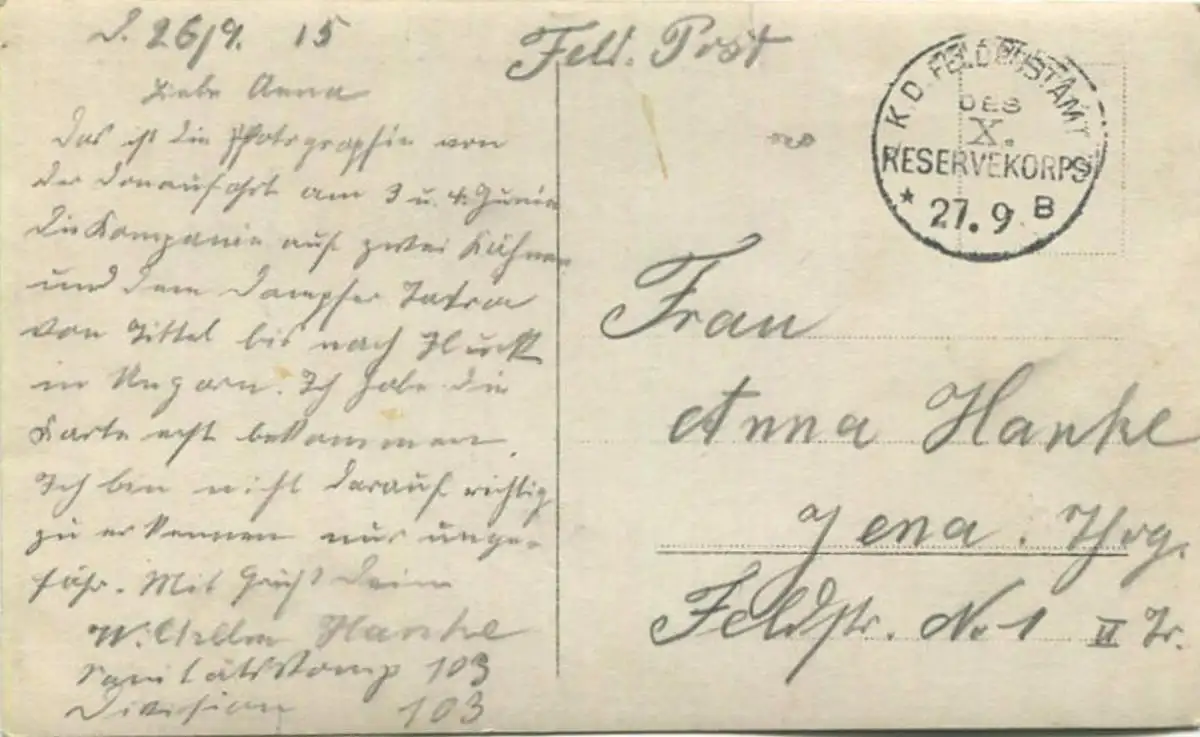 D. 26/9. 15
Liebe Anna
Das ist die Photographie von
der Donaufahrt am 3 u. 4. Junie
die Kompanie auf zwei Kähnen
und dem Dampfer Tatra
von Tittel bis nach
in Ungarn. Ich habe die
Karte erst bekommen.
Ich ben nicht darauf richtig
zu erkennen nur unge-
fähr. Mit Gruß Dein
Hanke
Sanitätskomp 103
Division 103
Feld. Post
K. D. FELDPOSTAMT
DES
X.
RESERVEKORPS
* 27.9 B
Frau
Anna Hanke
Jena. Thrg.
Feldstr. No 1 II Tr.